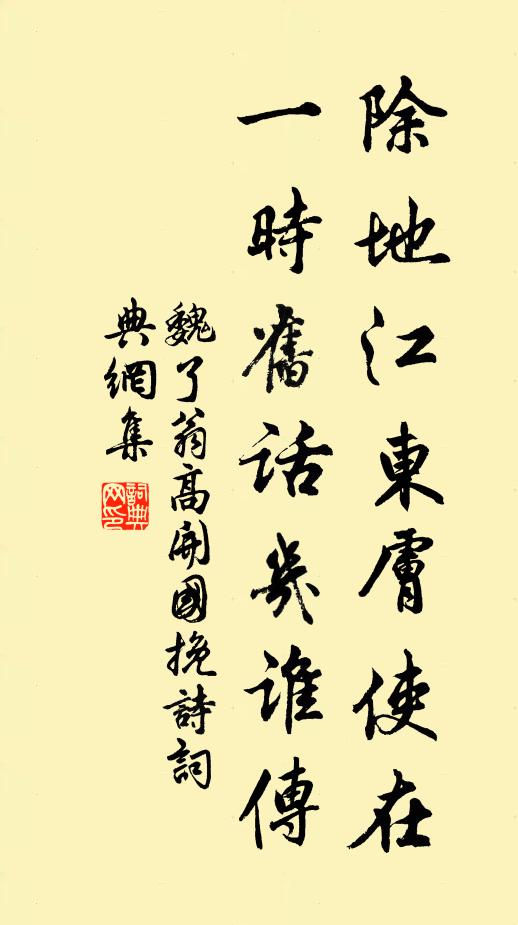 除地江東膚使在
一時舊話幾誰傳
魏了翁高開國挽詩詞
典網集
詞典網印